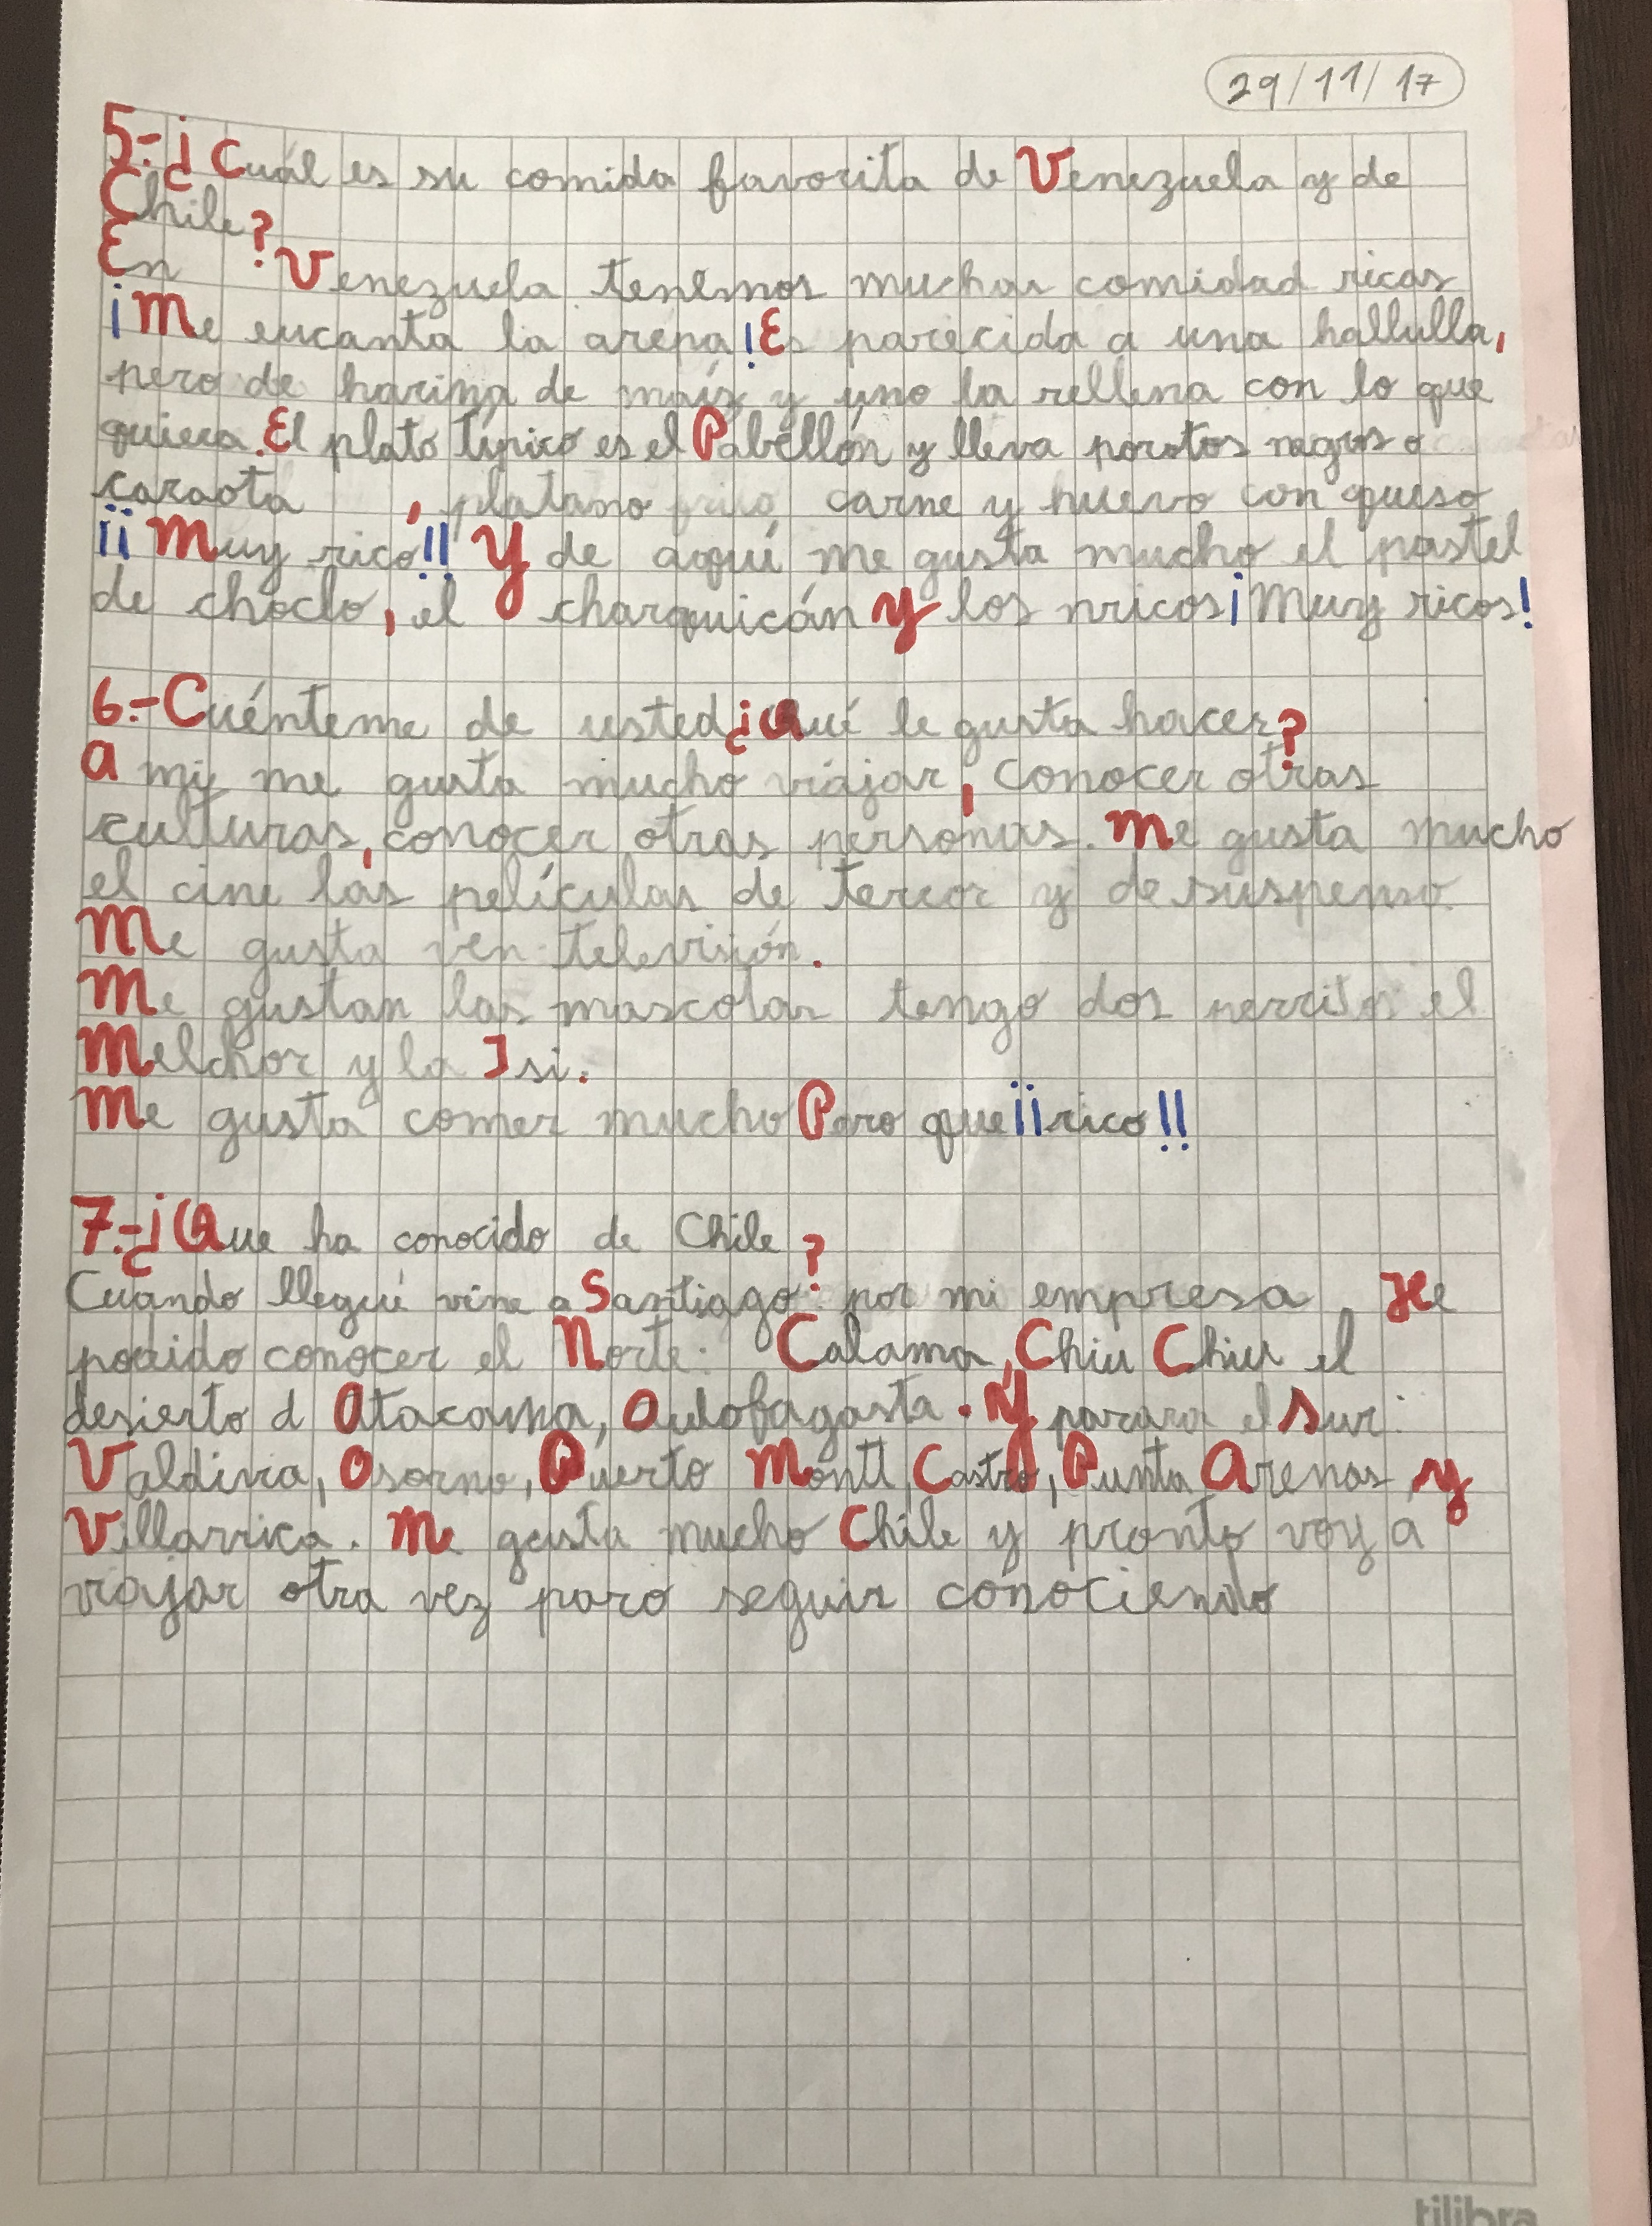 29/11/17
5.-¿Cuál es su comida favorita de Venezuela y de
Chile?
En Venezuela tenemos muchas comidad ricas
¡Me encanta la arepa! Es parecida a una hallulla,
pero de harina de maíz y uno la rellena con lo que
quiera. El plato típico es el Pabellón y lleva porotos negros o
caraota, platano frito carne y huevo con queso
¡¡Muy rico!! Y de aquí me gusta mucho el pastel
de choclo, el charquicán y los ¡Muy ricos!
6.-Cuénteme de usted ¿Qué le gusta hacer?
A mi me gusta mucho viajar, conocer otras
culturas, conocer otras personas. Me gusta mucho
el cine las películas de terror y de suspenso.
Me gusta ver televisión.
Me gustan las mascotas tengo dos perritos el
Melchor y la Isi.
Me gusta comer mucho Pero que ¡¡rico!!
7.-¿Que ha conocido de Chile?
Cuando llegué vine a Santiago por mi empresa. He
podido conocer el Norte: Calama, Chiu Chiu el
desierto d Atacama, Autofagasta. Y para el Sur:
Valdivia, Osorno, Puerto Montt, Castro, Punta Arenas y
Villarrica. Me gusta mucho Chile y pronto voy a
viajar otra vez para seguir conociendo
tilibra